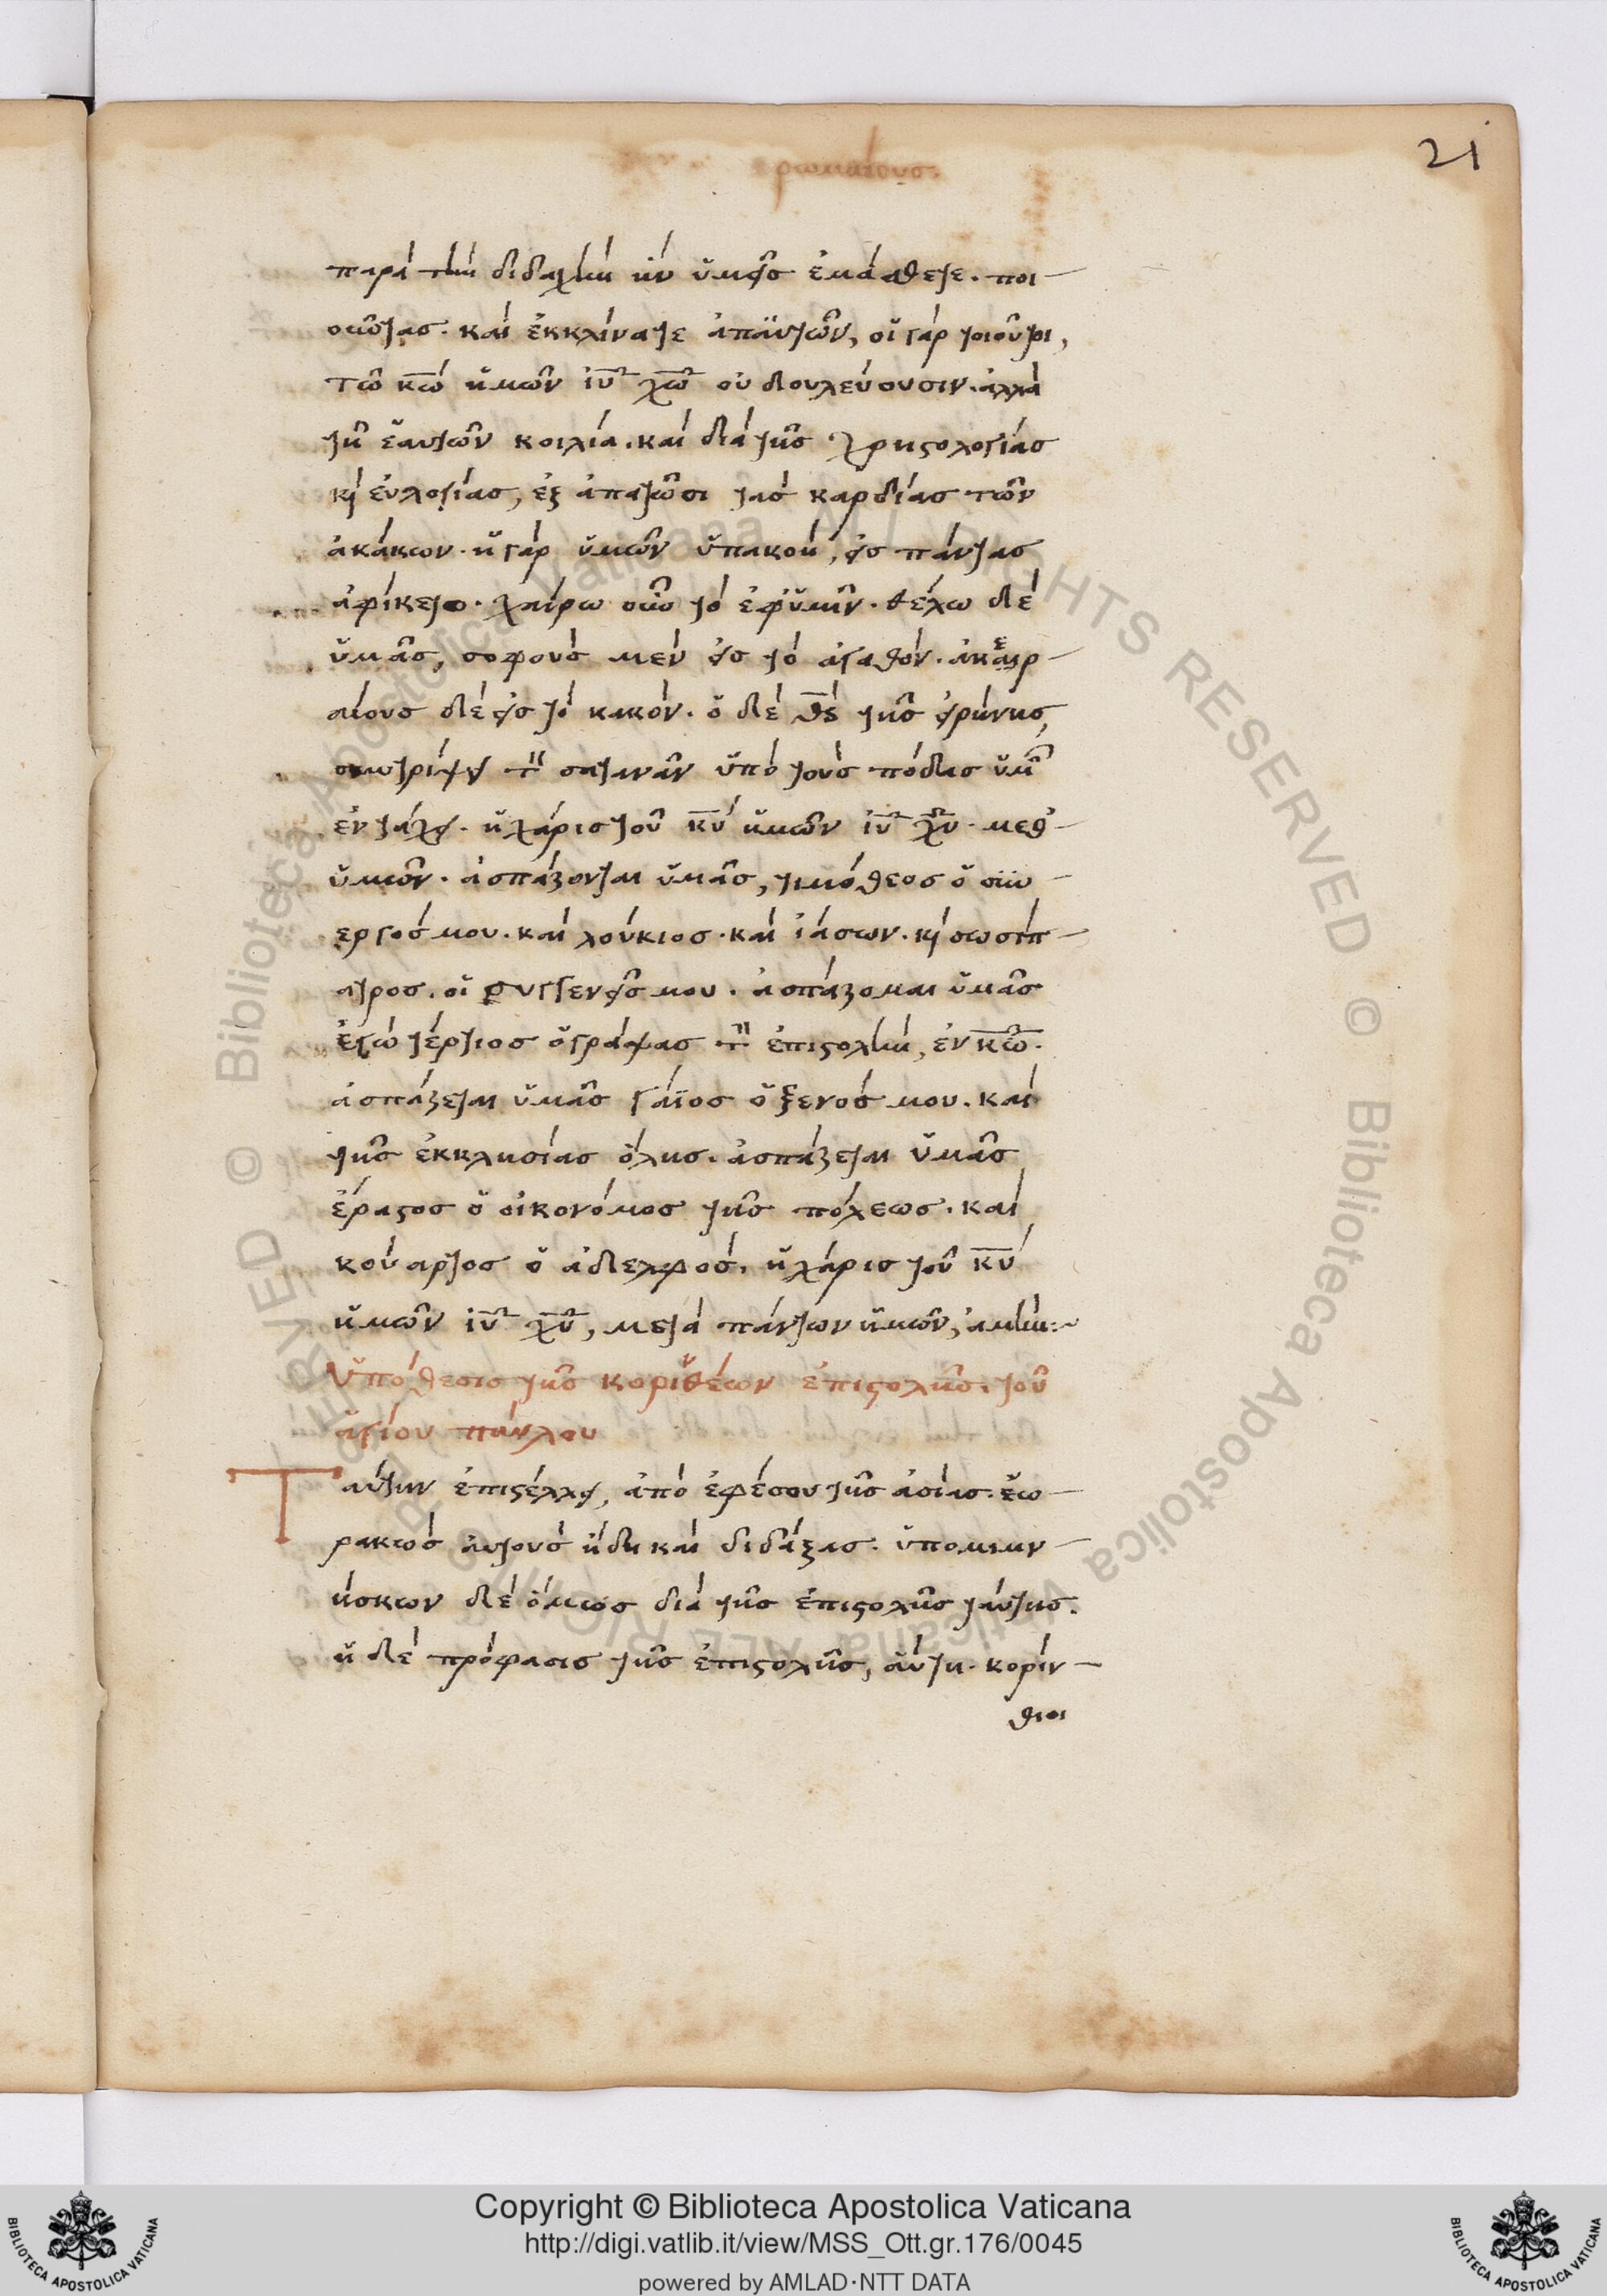 ρωμαίους.
21
παρὰ τὴν διδαχὴν ἣν ὑμεῖς ἐμάθετε. ποι-
οῦντας. καὶ ἐκκλίνατε ἀπαὐτῶν, οἱ γὰρ τοιοῦτοι,
τῶ κ̅ω̅ ἡμῶν ἰ̅υ̅ χ̅ω̅ οὐ δουλεύουσιν. ἀλλὰ
τῆ ἑαυτῶν κοιλία. καὶ διὰ τῆς χρηστολογίας
κὶ εὐλογίας, ἐξαπατῶσι τὰς καρδίας τῶν
ἀκάκων. ἡ γὰρ ὑμῶν ὑπακοὴ, εἰς πάντας
ἀφίκετο. χαίρω οὖν τὸ ἐφὑμῖν. θέλω δὲ
ὑμᾶς, σοφοὺς μὲν εἰς τὸ ἀγαθόν. ἀκεραι-
αίους δὲ εἰς τὸ κακόν. ὁ δὲ θ̅ς̅ τῆς εἰρήνης,
συντρίψει τὸν σατανᾶν ὑπὸ τοὺς πόδας ὑμῶν
ἐν τάχει. ἡ χάρις τοῦ κ̅υ̅ ἡμῶν ἰ̅υ̅ χ̅υ̅. μεθ'
ὑμῶν. ἀσπάζονται ὑμᾶς, τιμόθεος ὁ συν-
εργός μου. καὶ λούκιος. καὶ ἰάσων. κὶ σωσίπ-
ατρος. οἱ συγγενεῖς μου. ἀσπάζομαι ὑμᾶς
ἐγὼ τέρτιος ὁ γράψας τὴν ἐπιστολὴν, ἐν κ̅ω̅.
ἀσπάζεται ὑμᾶς γάϊος ὁ ξενός μου. καὶ
τῆς ἐκκλησίας ὅλης. ἀσπάζεται ὑμᾶς
ἔραστος ὁ οἰκονόμος τῆς πόλεως. καὶ
κούαρτος ὁ ἀδελφός. ἡ χάρις τοῦ κ̅υ̅
ἡμῶν ἰ̅υ̅ χ̅υ̅, μετὰ πάντων ἡμῶν, ἀμήν:~
Ὑπόθεσις τῆς κορινθέων ἐπιστολῆς. τοῦ
ἁγίου παύλου
Ταύτην ἐπιστέλλει, ἀπὸ ἐφέσου τῆς ἀσίας. ἑω-
ρακὼς αὐτοὺς ἤδη καὶ διδάξας. ὑπομιμν-
ήσκων δὲ ὅμως διὰ τῆς ἐπιστολῆς ταύτης.
ἡ δὲ πρόφασις τῆς ἐπιστολῆς, αὕτη. κορίν-
θιοι
Copyright © Biblioteca Apostolica Vaticana
http://digi.vatlib.it/view/MSS_Ott.gr.176/0045
powered by AMLAD·NTT DATA